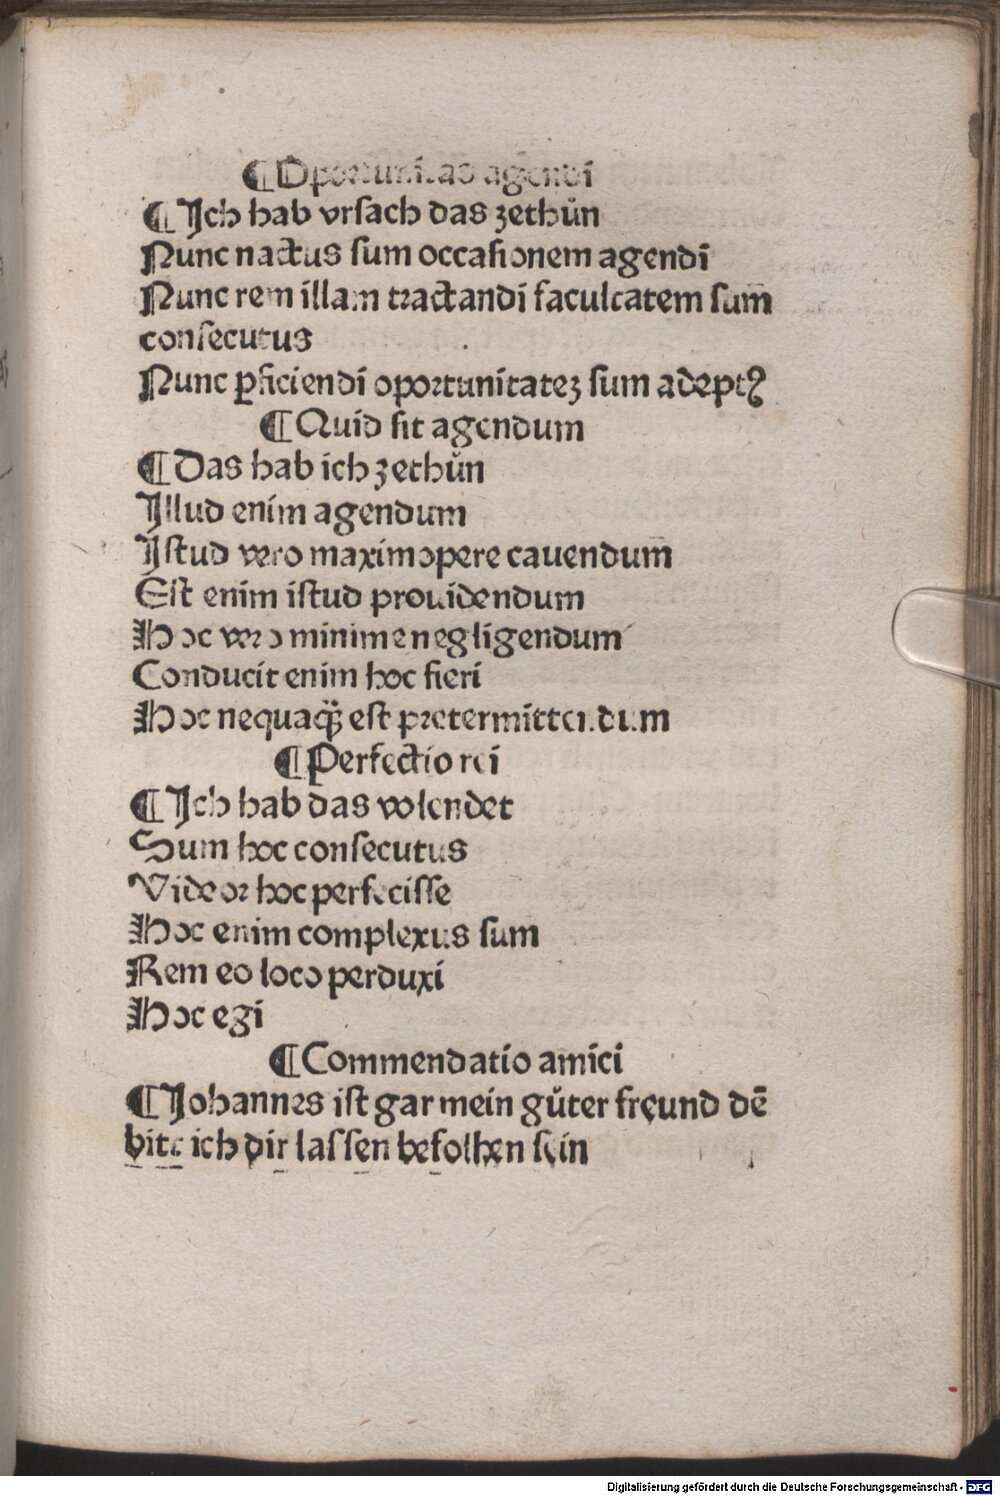 ¶ Oportunitas agendi
¶ Jch hab vrſach das zethuͦn
Nunc nactus ſum occaſionem agendi
Nunc rem illam tractandi facultatem ſum̄
conſecutus
Nunc ꝑficiendi oportunitateꝫ ſum adeptꝰ
¶ Quid ſit agendum
¶ Das hab ich zethuͦn
Jllud enim agendum
Jſtud vero maximopere cauendum̄
Eſt enim iſtud prouidendum
Hoc vero minime negligendum
Conducit enim hoc fieri
Hoc nequaq̃ꝫ eſt pretermittendum
¶ Perfectio rei
¶ Jch hab das volendet
Sum hoc conſecutus
Videor hoc perfeciſſe
Hoc enim complexus ſum
Rem eo loco perduxi
Hoc egi
¶ Commendatio amici
¶ Johannes iſt gar mein guͦter freund dē
bite ich dir laſſen befolhen ſein
Digitalisierung gefördert durch die Deutsche Forschungsgemeinschaft - DFG